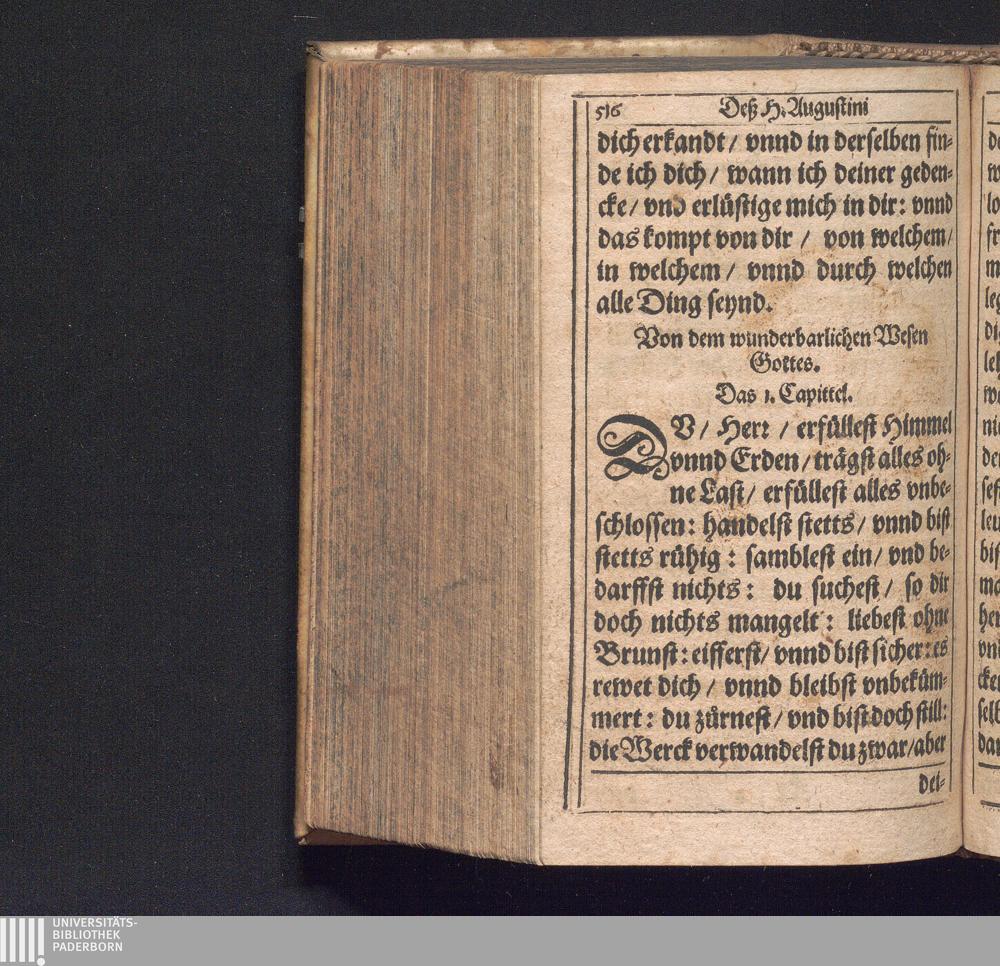 516 Deß H. Augustini
dich erkandt / vnnd in derselben fin-
de ich dich / wann ich deiner geden-
cke / vnd erlüstige mich in dir: vnnd
das kompt von dir / von welchem /
in welchem / vnnd durch welchen
alle Ding seynd.
Von dem wunderbarlichen Wesen
Gottes.
Das 1. Capittel.
DV / Herr / erfüllest Himmel
vnnd Erden / trägst alles oh-
ne Last / erfüllest alles vnbe-
schlossen: handelst stetts / vnnd bist
stetts rühig: samblest ein / vnd be-
darffst nichts: du suchest / so dir
doch nichts mangelt: liebest ohne
Brunst: eifferst / vnnd bist sicher: es
rewet dich / vnnd bleibst vnbeküm-
mert: du zürnest / vnd bist doch still:
die Werck verwandelst du zwar / aber
dei-
UNIVERSITÄTS-
BIBLIOTHEK
PADERBORN